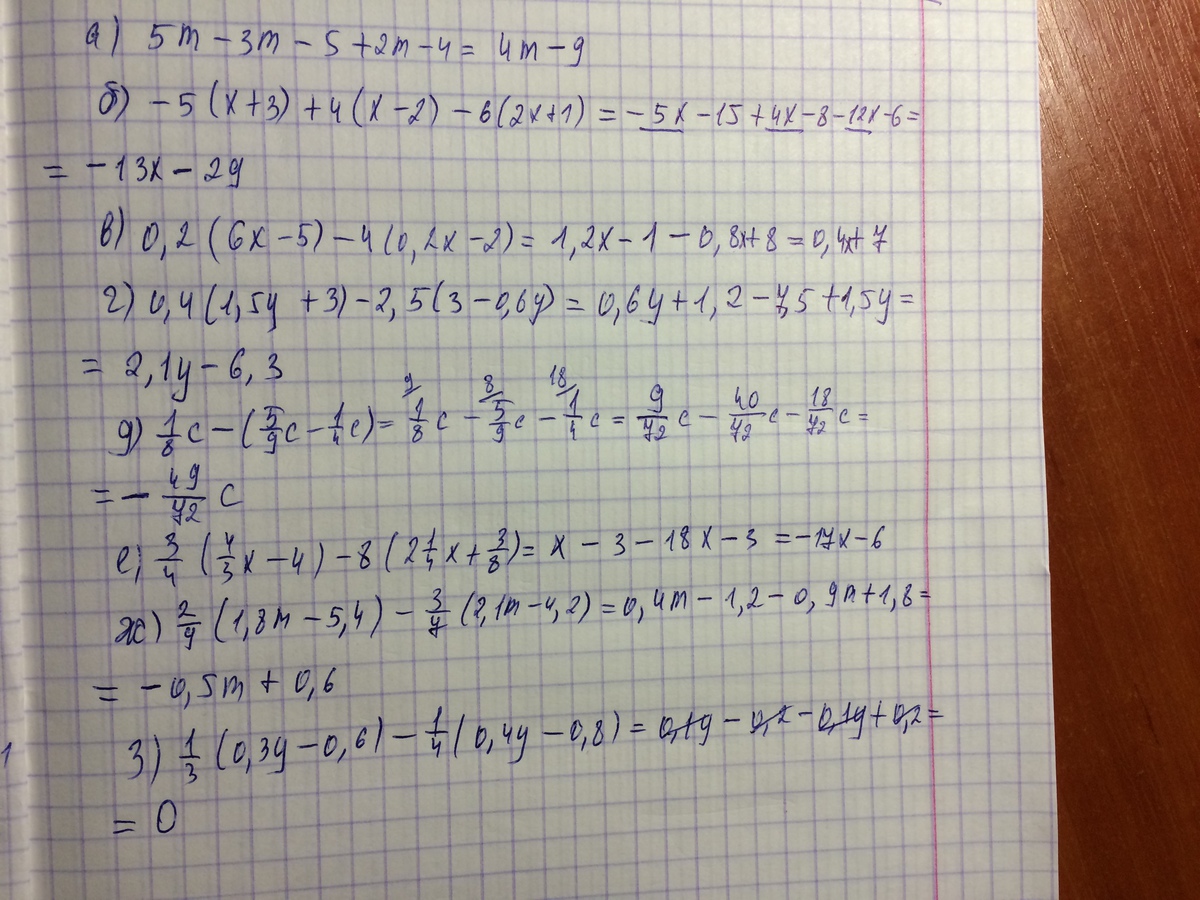 а) 5m − 3m − 5 + 2m − 4 = 4m − 9
б) −5(x+3) + 4(x−2) − 6(2x+1) = −5x − 15 + 4x − 8 − 12x − 6 =
= −13x − 29
в) 0,2(6x−5) − 4(0,2x−2) = 1,2x − 1 − 0,8x + 8 = 0,4x + 7
г) 0,4(1,5y + 3) − 2,5(3 − 0,6y) = 0,6y + 1,2 − 7,5 + 1,5y =
= 2,1y − 6,3
9 8 18
д) 1/8 c − (5/9 c − 1/4 c) = 1/8 c − 5/9 c − 1/4 c = 9/72 c − 40/72 c − 18/72 c =
= − 49/72 c
е) 3/4 (4/3 x − 4) − 8 (2 1/4 x + 3/8) = x − 3 − 18x − 3 = −17x − 6
ж) 2/9 (1,8m − 5,4) − 3/7 (2,1m − 4,2) = 0,4m − 1,2 − 0,9m + 1,8 =
= −0,5m + 0,6
з) 1/3 (0,3y − 0,6) − 1/4 (0,4y − 0,8) = 0,1y − 0,2 − 0,1y + 0,2 =
= 0